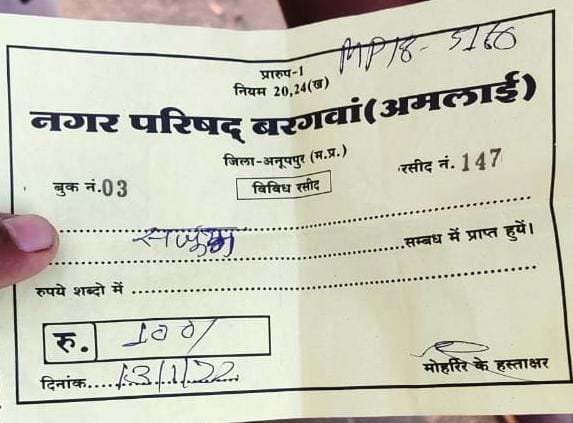 MP18-5160
प्रारुप-1
नियम 20,24(ख)
नगर परिषद् बरगवां(अमलाई)
जिला-अनूपपुर (म.प्र.)
बुक नं.03
विविध रसीद
रसीद नं. 147
सम्बध में प्राप्त हुयें।
रुपये शब्दो में
रु. 100/
दिनांक....13/1/22
मोहर्रिर के हस्ताक्षर